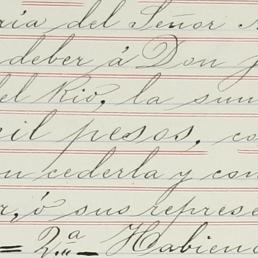 ria del Señor
deber á Don J
el Rio, la sum
mil pesos, co
n cederla y con
r, ó sus represe
= 2ª = Habiend